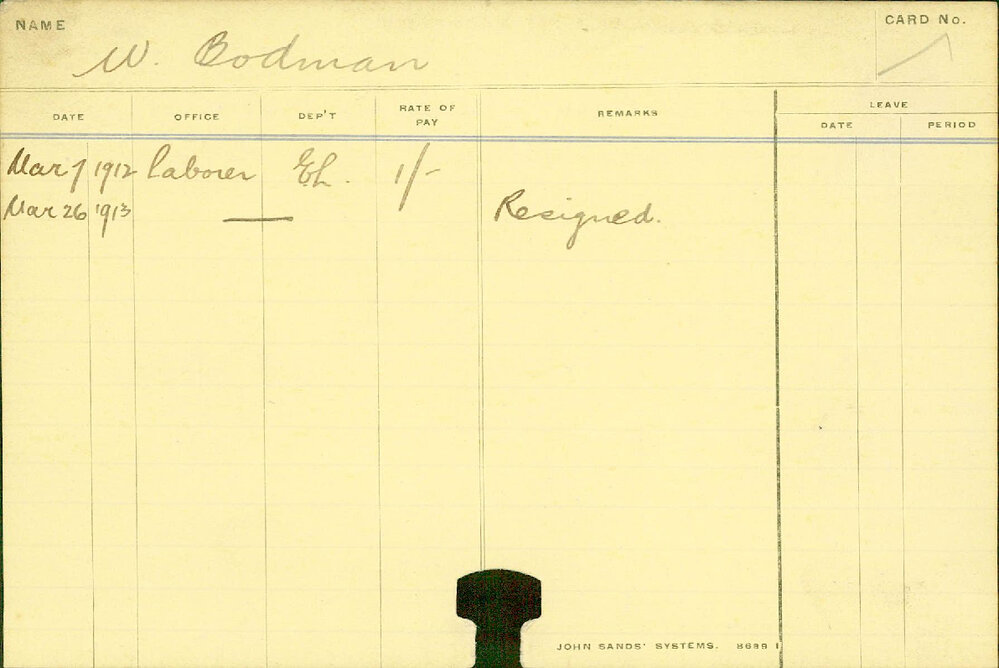 NAME
CARD No.
W. Bodman
DATE OFFICE DEP'T RATE OF PAY REMARKS LEAVE
DATE PERIOD
Mar 7 1912 laborer EL. 1/-
Mar 26 1913 — Resigned.
JOHN SANDS' SYSTEMS. 8699